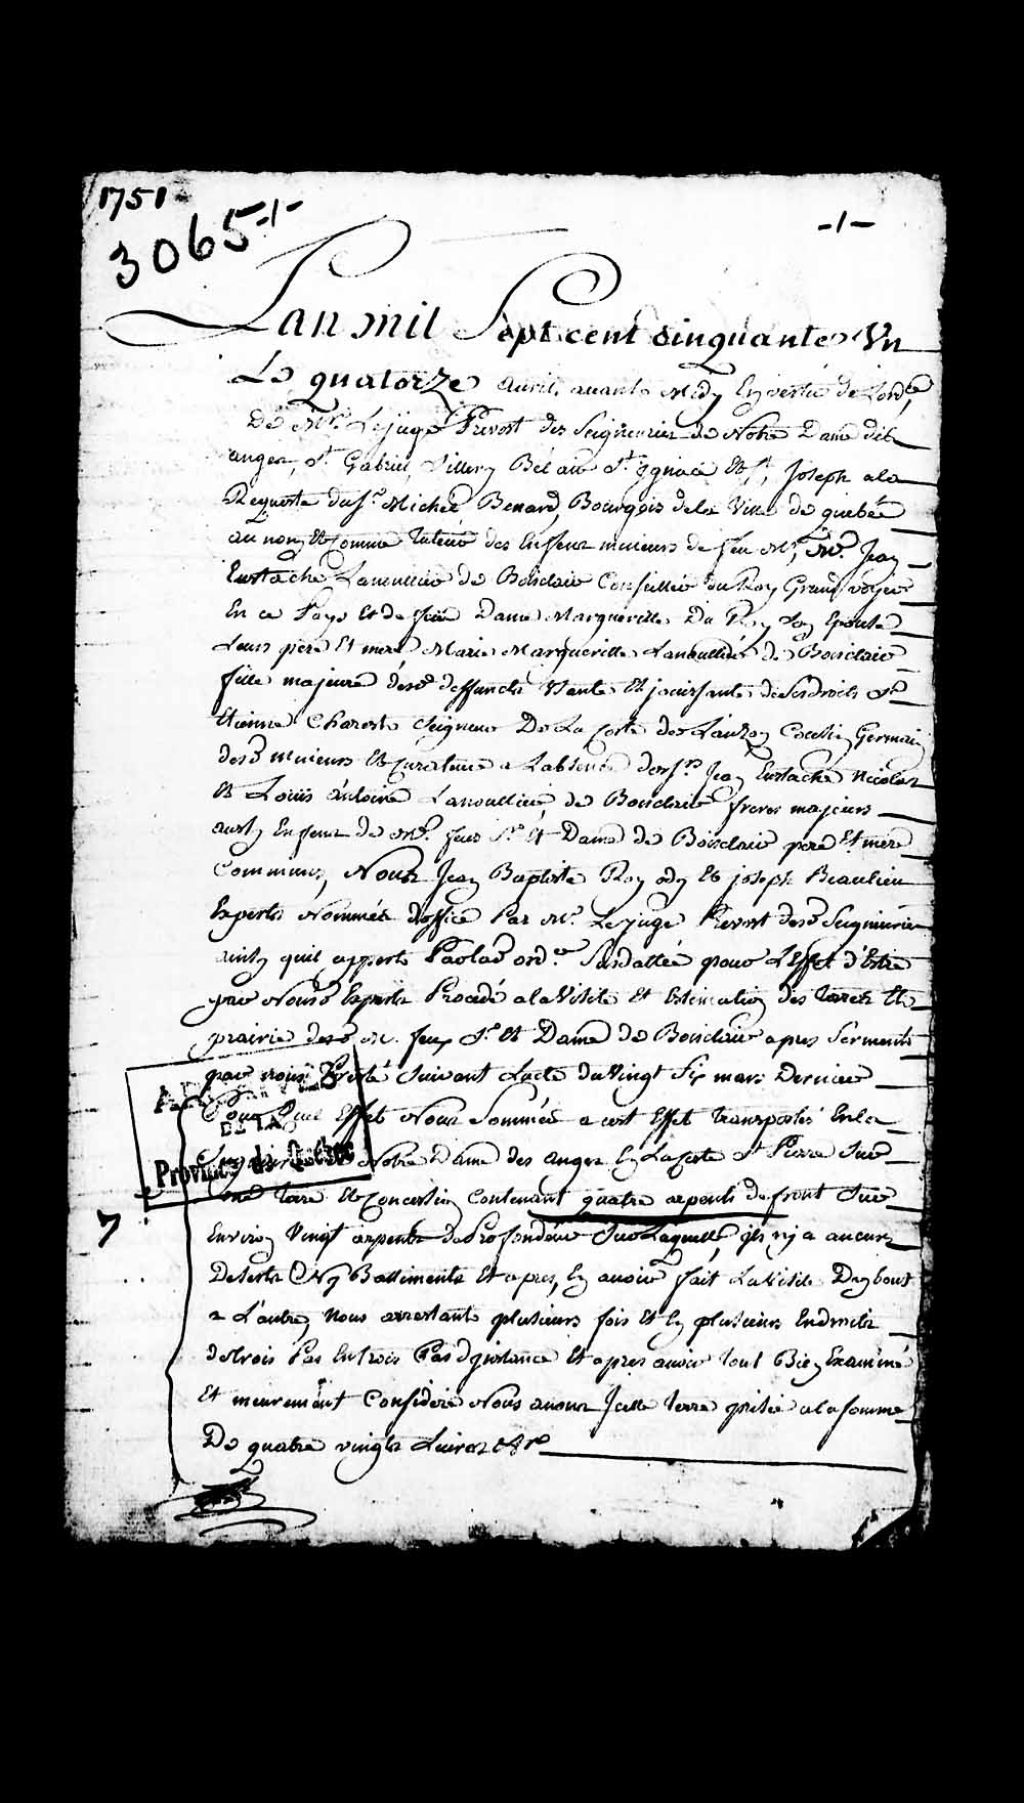 1751
3065 -1-
-1-
Lan mil Sept cent cinquante Un
Le quatorze avril avant Midy En vertu de Lord.ce
De Mr. Le juge Prevost des Seigneuries de Notre Dame des
anges, St. Gabriel, Sillery Bélair St. Ignace Et St. Joseph ala
Requeste du Sr. Michel Benard, Bourgois dela Ville de quebec
au nom Et Comme Tuteur des Enfens mineurs de feu Mr. Me. Jean
Eustache Lanoullier de Boisclair Conseillier du Roy Grand voyer
En ce Pays Et de feue Dame Margueritte Du Roy Son Epouse
Leurs pere Et mere Marie Marguerille Lanoullier de Boisclair
fille majeure desd. deffuncts Usante Et jouissante de Ses droits Sr.
Etienne Charest Seigneur De La Coste de Lauzon Cousin Germain
desd. mineurs Et Curateur a Labsence des Srs. Jean Eustache Nicolas
Et Louis Antoine Lanoullier de Boisclair freres majeurs
aussy Enfens de feus Sr. Et Dame de Boisclair pere Et mere
Communs, Nous Jean Baptiste Roy ody Et joseph Beaulieu
Experts Nommés doffice Par Mr. Le juge Prevost desd. Seigneuries
ainsy quil apperts Par lad. ord.ce Susdattée pour L'Effet d'Estre
par Nousd. Experts Procedé ala Visite Et Estimation des Terres Et
prairie desd. feux Sr. Et Dame de Boisclair apres Serments
par nous Presté Suivant Lacte du Vingt Six mars Dernier
Pour Quel Effet Nous Sommes a cest Effet Transportés En la
Seigneurie de Notre Dame des anges En La Coste St. Pierre Sur
une Terre Et Concession Contenant quatre arpents de front Sur
7
Environ Vingt arpents de Profondeur Sur Laquelle, il ny a aucuns
Deserts Ny Battiments Et apres, En avoir fait La Visite D'un bout
a L'autre, Nous arrestants plusieurs fois Et En plusieurs Endroits
de trois Pas En trois Pas d jistance Et apres avoir Tout Bien Examiné
Et meurement Considéré Nous avons Icelle Terre prisée ala Somme
De quatre vingts Livres
Province de Québec